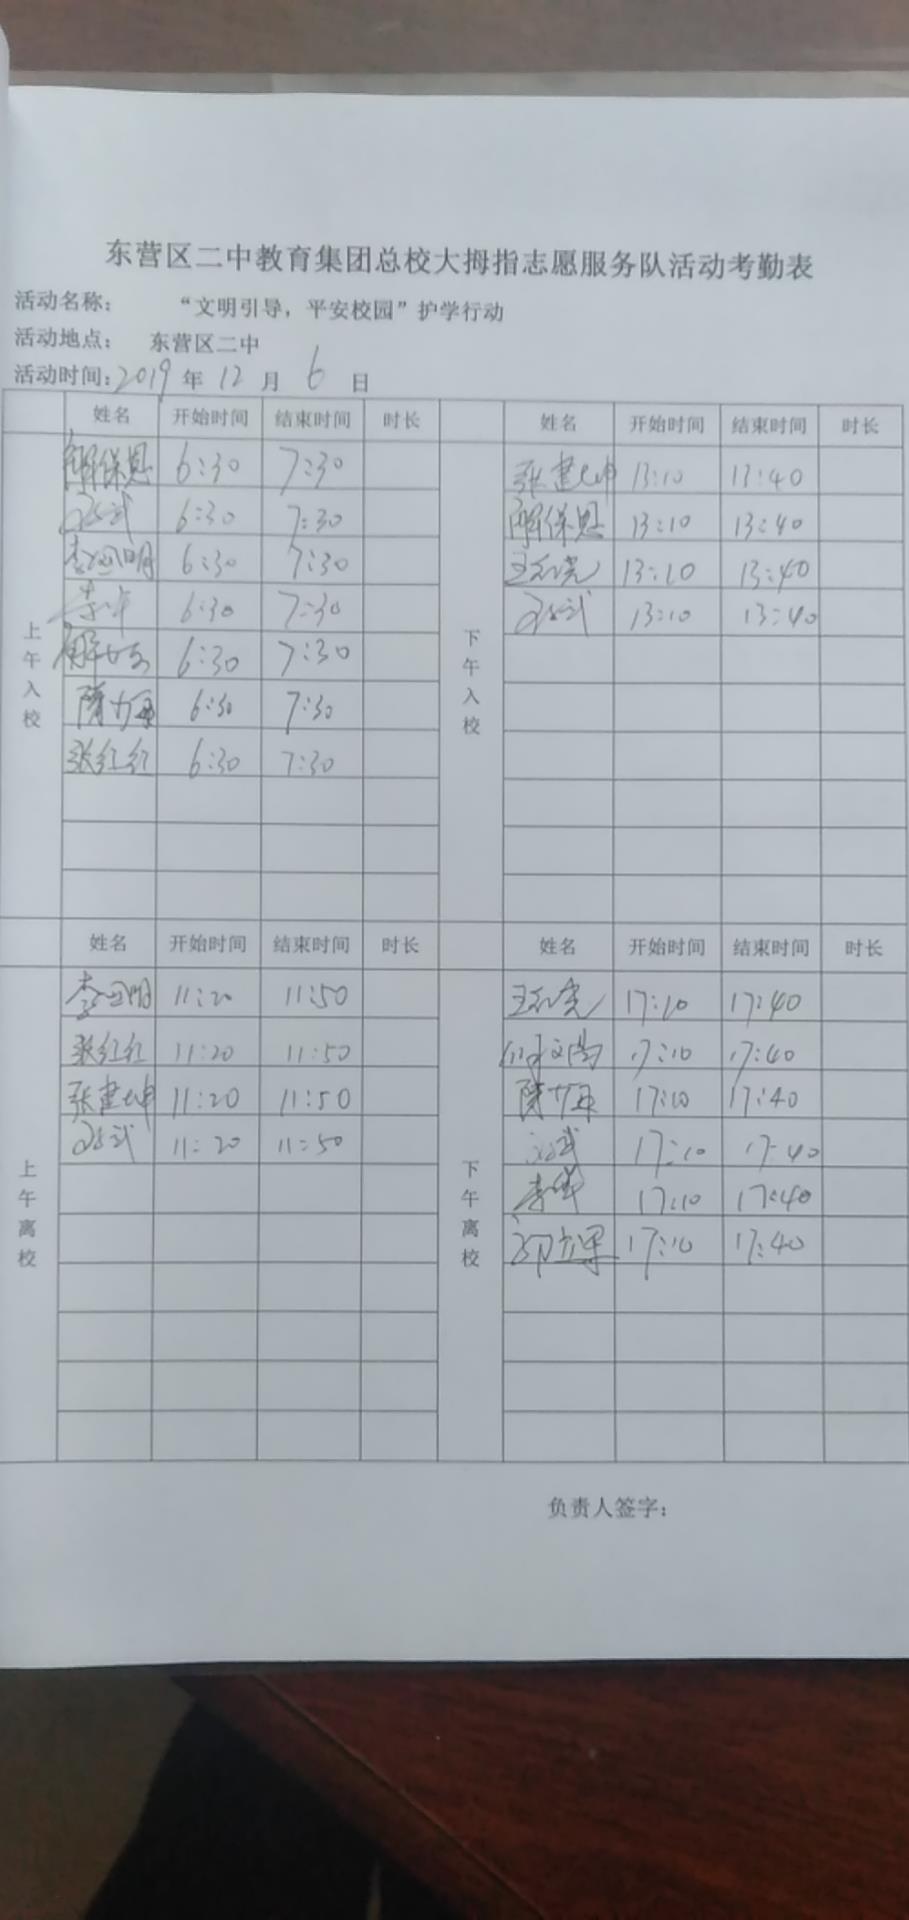 东营区二中教育集团总校大拇指志愿服务队活动考勤表
活动名称： “文明引导，平安校园”护学行动
活动地点： 东营区二中
活动时间：2019 年 12 月 6 日
姓名 开始时间 结束时间 时长 姓名 开始时间 结束时间 时长
上午入校
解保恩 6:30 7:30
6:30 7:30
李国明 6:30 7:30
李华 6:30 7:30
解 6:30 7:30
隋 6:30 7:30
张红红 6:30 7:30
下午入校
张建坤 13:10 13:40
解保恩 13:10 13:40
王 13:10 13:40
13:10 13:40
姓名 开始时间 结束时间 时长 姓名 开始时间 结束时间 时长
上午离校
李国明 11:20 11:50
张红红 11:20 11:50
张建坤 11:20 11:50
11:20 11:50
下午离校
王 17:10 17:40
17:10 17:40
隋 17:10 17:40
17:10 17:40
李华 17:10 17:40
17:10 17:40
负责人签字：